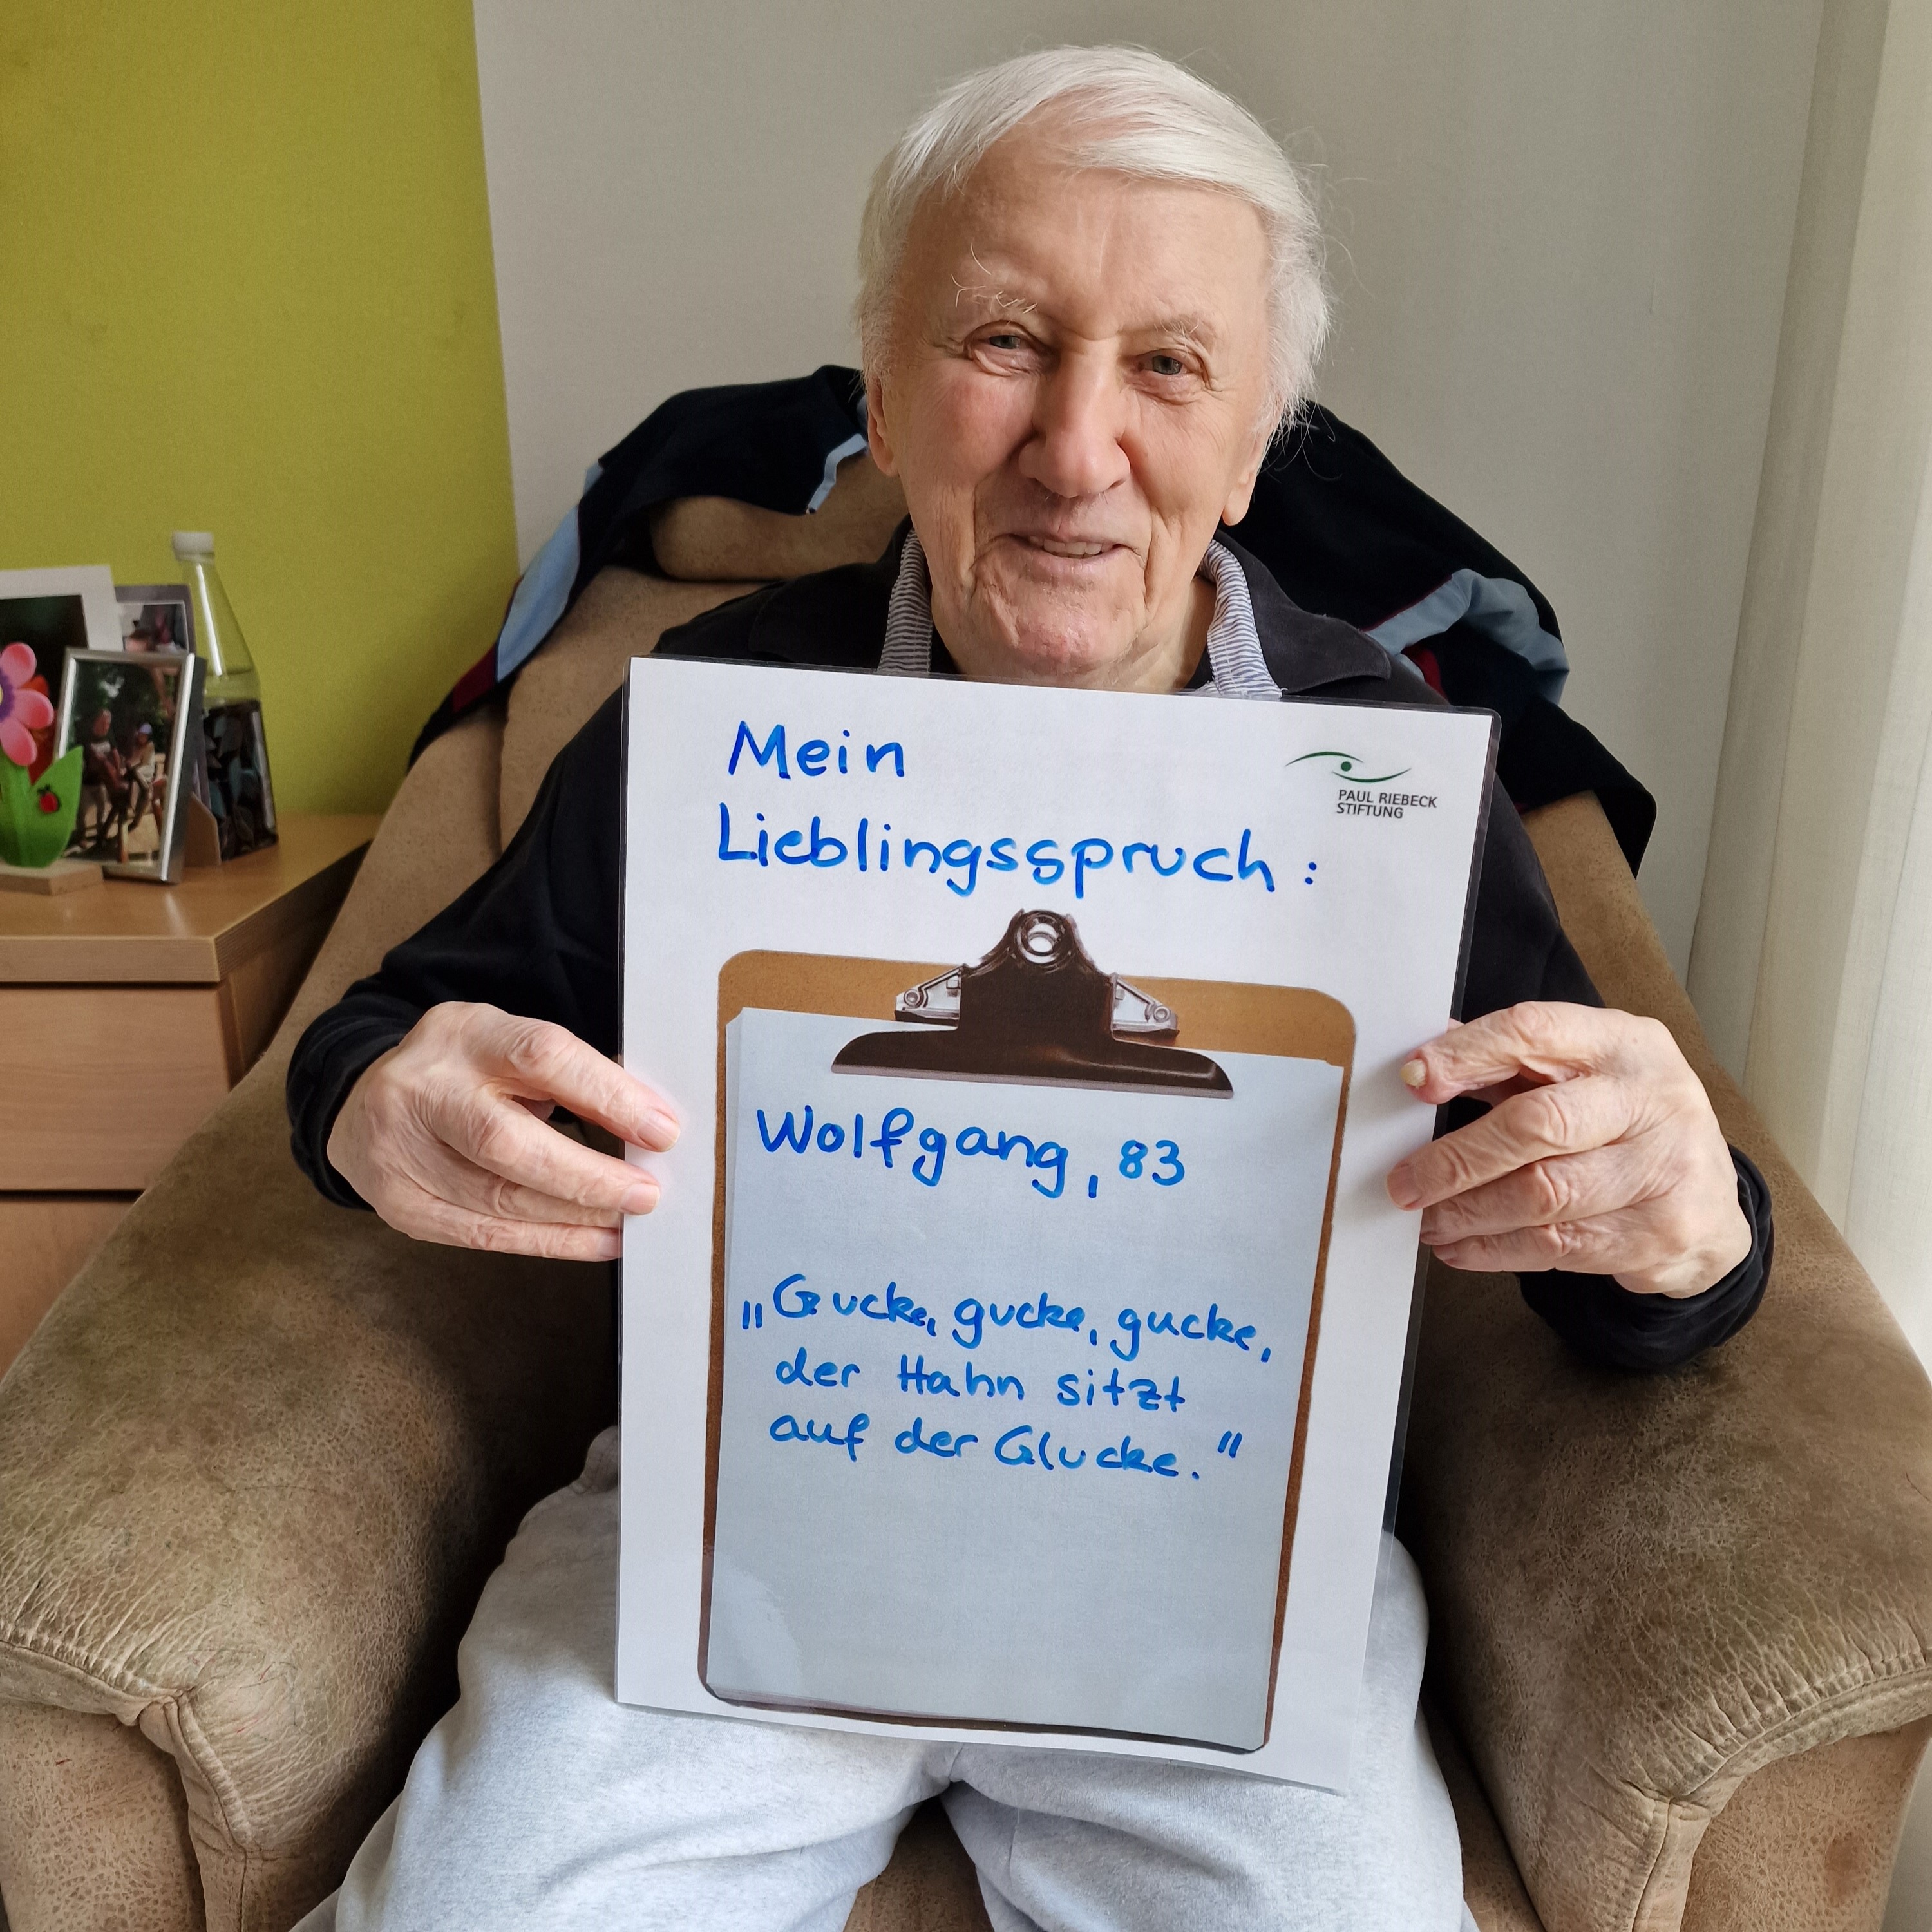 Mein
Lieblingsspruch:
PAUL RIEBECK
STIFTUNG
Wolfgang, 83
„Gucke, gucke, gucke,
der Hahn sitzt
auf der Glucke."